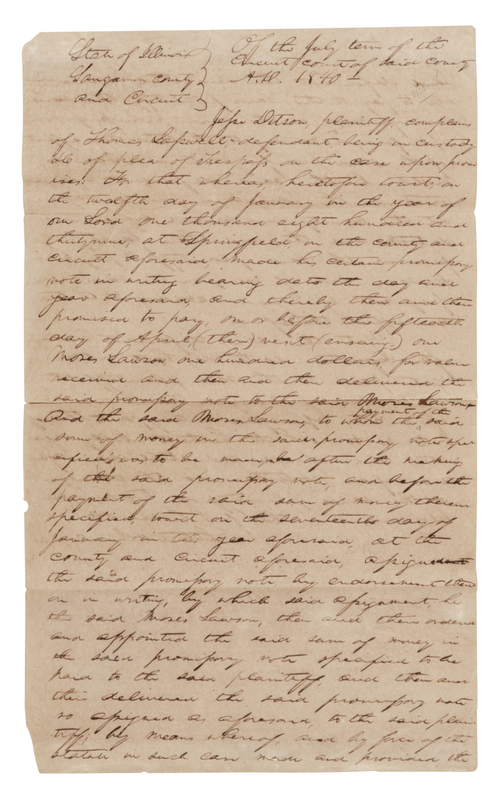 State of Illinois } Of the July term of the
Sangamon County } Circuit court of said County
and Circuit } A.D. 1840 –
Jesse Dotson plaintiff complains
of Thomas defendant being in custody
&c of plea of trespass on the case upon prom
ises. For that whereas heretofore towit, on
the twelfth day of January in the year of
our Lord one thousand eight hundred and
thirtynine, at Springfield in the county and
circuit aforesaid made his certain promissory
note in writing bearing date the day and
year aforesaid and thereby then and there
promised to pay, on or before the fifteenth
day of April (then) next (ensuing) one
Moses Lawson one hundred dollars, for value
received and then and then delivered the
said promissory note to the said Moses Lawson
And the said Moses Lawson, to whom the payment of the said
sum of money in the said promissory note spe
cified, was to be made, after the making
of the said promissory note, and before the
payment of the said sum of money therein
specified, towit on the seventeenth day of
January in the year aforesaid at the
county and circuit aforesaid, assigned
the said promissory note by endorsement then
on in writing, by which said assignment, he
the said Moses Lawson, then and there ordered
and appointed the said sum of money in
the said promissory note specified to be
paid to the said plaintiff and then and
there delivered the said promissory note
so assigned as aforesaid, to the said plain
tiff; by means whereof, and by force of the
statute in such case made and provided the